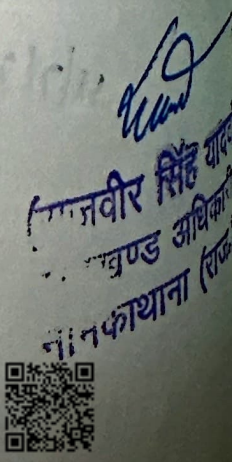 (राजवीर सिंह यादव
खण्ड अधिकारी
नीमकाथाना (राज.